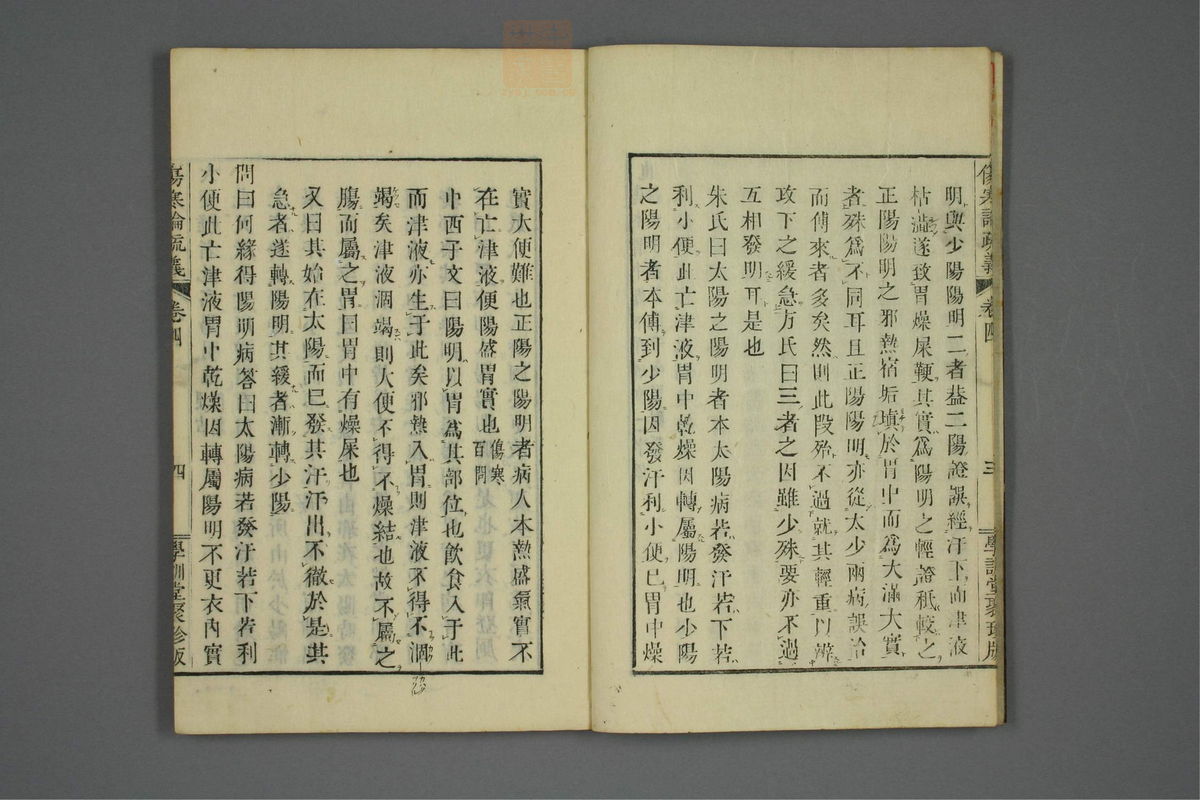 傷寒論疏義 卷四 三 學訓堂聚珍版
明與少陽陽明二者蓋二陽證誤經汗下而津液
枯溢遂致胃燥屎鞕其實爲陽明之輕證秖較之
正陽陽明之邪熱宿垢填於胃中而爲大滿大實
者殊爲不同耳且正陽陽明亦從太少兩病誤治
而傳來者多矣然則此段殆不過就其輕重以辨
攻下之緩急方氏曰三者之因雖少殊要亦不過
互相發明耳是也
朱氏曰太陽之陽明者本太陽病若發汗若下若
利小便此亡津液胃中乾燥因轉屬陽明也少陽
之陽明者本傳到少陽因發汗利小便已胃中燥
實大便難也正陽之陽明者病人本熱盛氣實不
在亡津液便陽盛胃實也傷寒百問
中西子文曰陽明以胃爲其部位也飲食入于此
而津液亦生于此矣邪熱入胃則津液不得不涸
竭矣津液涸竭則大便不得不燥結也故不屬之
腸而屬之胃曰胃中有燥屎也
又曰其始在太陽而已發其汗汗出不徹於是其
急者遂轉陽明其緩者漸轉少陽
問曰何緣得陽明病答曰太陽病若發汗若下若利
小便此亡津液胃中乾燥因轉屬陽明不更衣內實
傷寒論疏義 卷四 四 學訓堂聚珍版